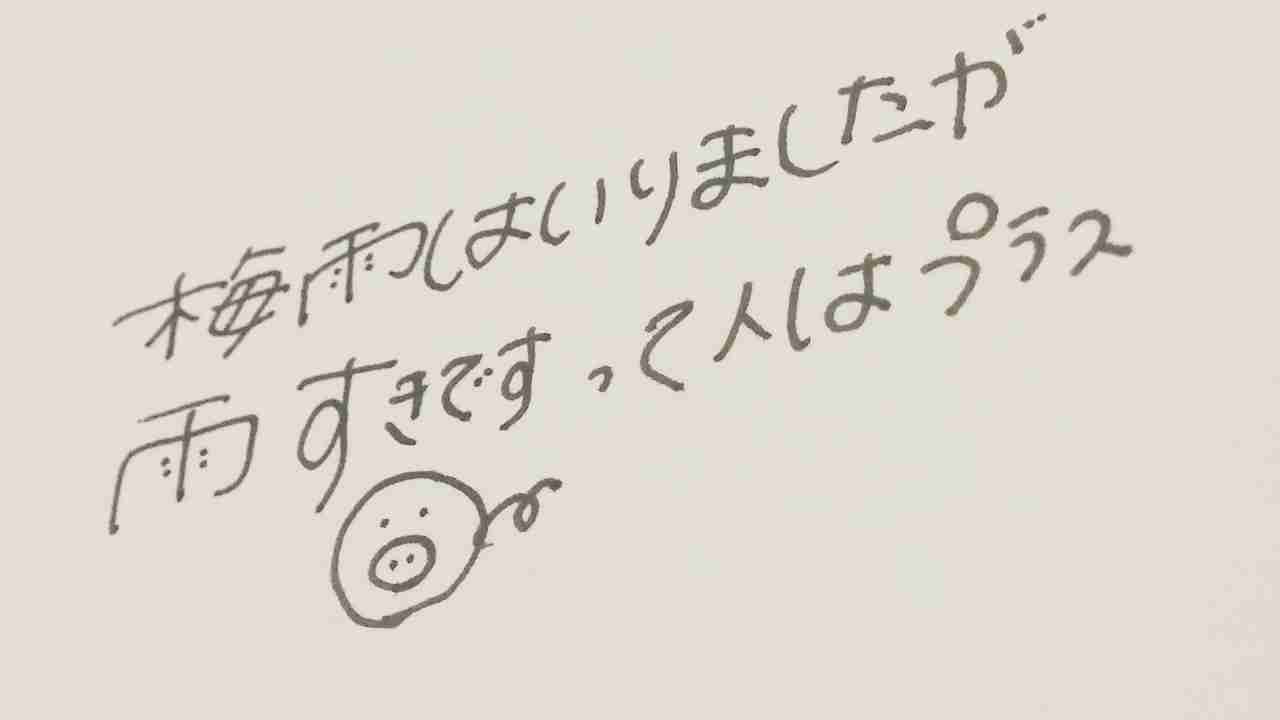 梅雨はいりましたが
雨すきですって人はプラス